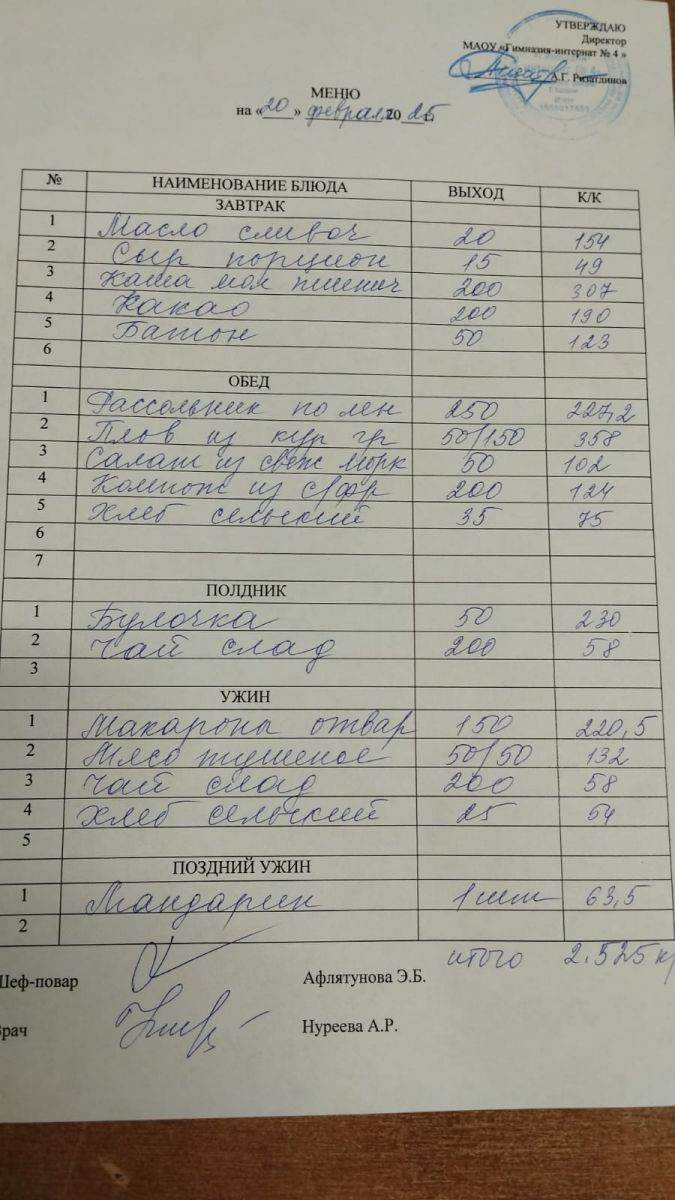 УТВЕРЖДАЮ
Директор
МАОУ «Гимназия-интернат № 4 »
А.Г. Ризатдинов
МЕНЮ
на «20» февраля 2025 г.
№ НАИМЕНОВАНИЕ БЛЮДА ВЫХОД К/К
ЗАВТРАК
1 Масло сливоч 20 154
2 Сыр порцион 15 49
3 Каша мол пшенич 200 307
4 Какао 200 190
5 Батон 50 123
6
ОБЕД
1 Рассольник по лен 250 227,2
2 Плов из кур гр 50/150 358
3 Салат из свеж морк 50 102
4 Компот из с/фр 200 124
5 Хлеб сельский 35 75
6
7
ПОЛДНИК
1 Булочка 50 230
2 Чай слад 200 58
3
УЖИН
1 Макароны отвар 150 220,5
2 Мясо тушеное 50/50 132
3 Чай слад 200 58
4 Хлеб сельский 25 54
5
ПОЗДНИЙ УЖИН
1 Мандарин 1 шт 63,5
2
итого 2.525 к
Шеф-повар Афлятунова Э.Б.
Врач Нуреева А.Р.